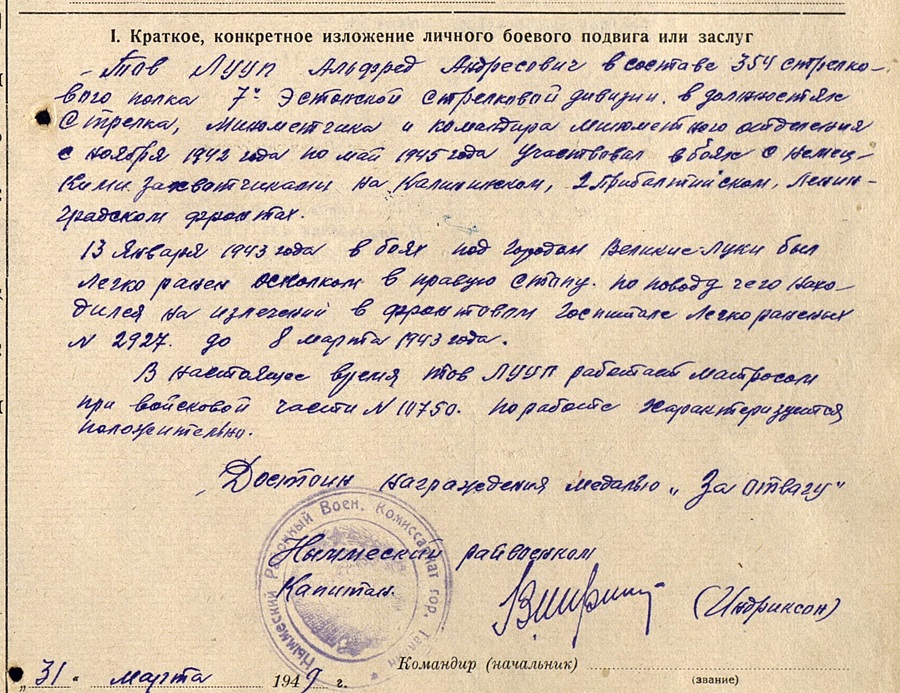 I. Краткое, конкретное изложение личного боевого подвига или заслуг
- Тов ЛУУП Альфред Андресович в составе 354 стрелко-
вого полка 7й Эстонской стрелковой дивизии. в должностях
Стрелка, Минометчика и командира Минометного отделения
с ноября 1942 года по май 1945 года участвовал в боях с Немец-
кими захватчиками на Калининском, 2 Прибалтийском, Ленин-
градском фронтах.
13 Января 1943 года в боях под городом Великие-Луки был
легко ранен осколком в правую стопу. по поводу чего нахо-
дился на излечений в фронтовом Госпитале легко раненых
N 2927. до 8 марта 1943 года.
В настоящее время тов ЛУУП работает матросом
при войсковой части N 10750. по работе характеризуется
положительно.
Достоин награждения медалью „За отвагу"
Нымме́ский Районный Воен. Комиссариат гор.
Нымmeский райвоенком
Капитан.
(Индриксон)
Командир (начальник)
(звание)
„31" марта 1949 г.